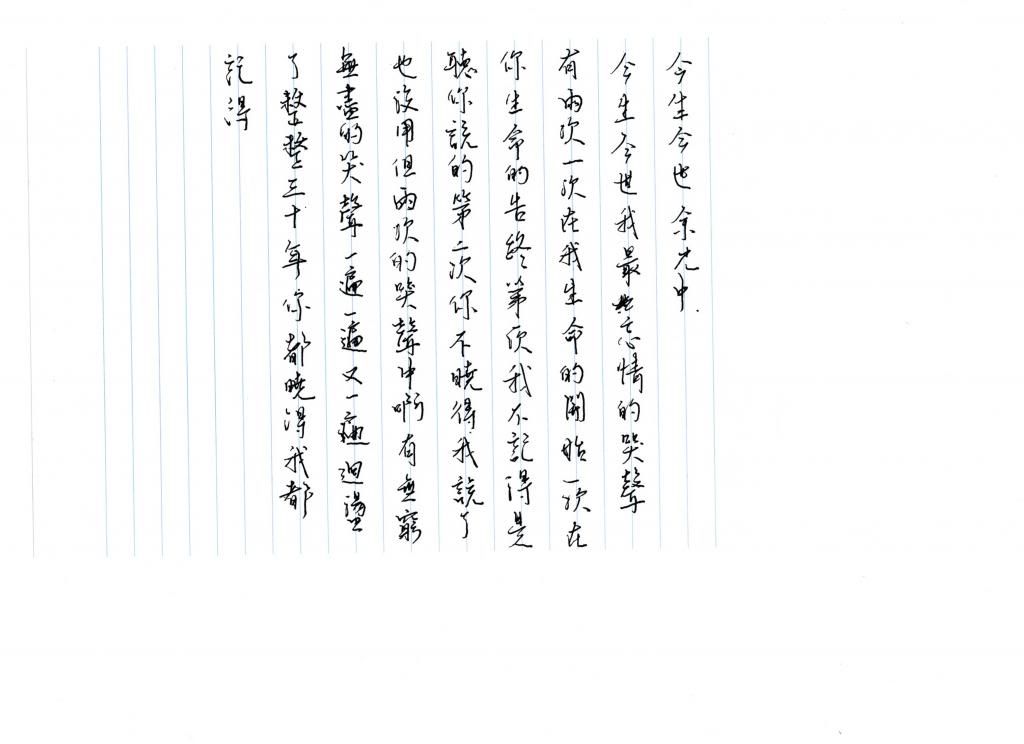 今生今世 余光中.
今生今世我最忘情的哭聲
有兩次一次在我生命的開始一次在
你生命的告終第一次我不記得是
聽你說的第二次你不曉得我說了
也沒用但兩次的哭聲中啊有無窮
無盡的笑聲一遍一遍又一遍迴盪
了整整三十年你都曉得我都
記得